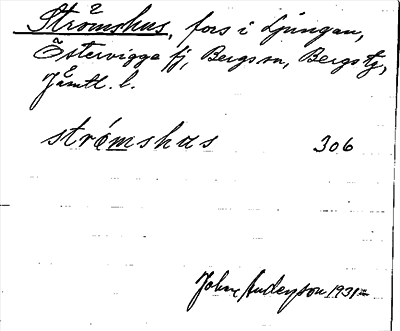 Strömshus, fors i Ljungan,
Östervigge fj, Bergs sn, Bergs tg,
Jämtl. l.
strö́mshus 306
John Anderson 1931